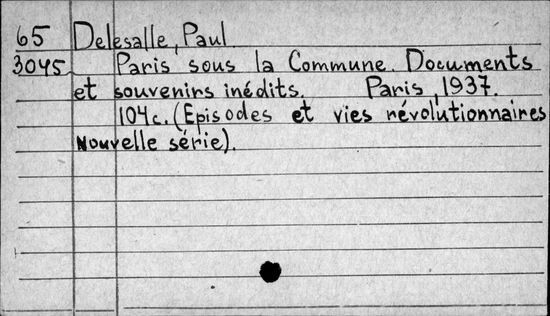 65 Delesalle, Paul
3045 Paris sous la Commune. Documents
et souvenirs inédits. Paris, 1937.
104c. (Episodes et vies révolutionnaires
Nouvelle série).